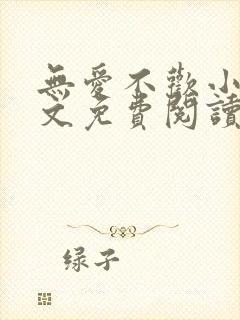 無愛不歡小
文免費閱讀
绿子